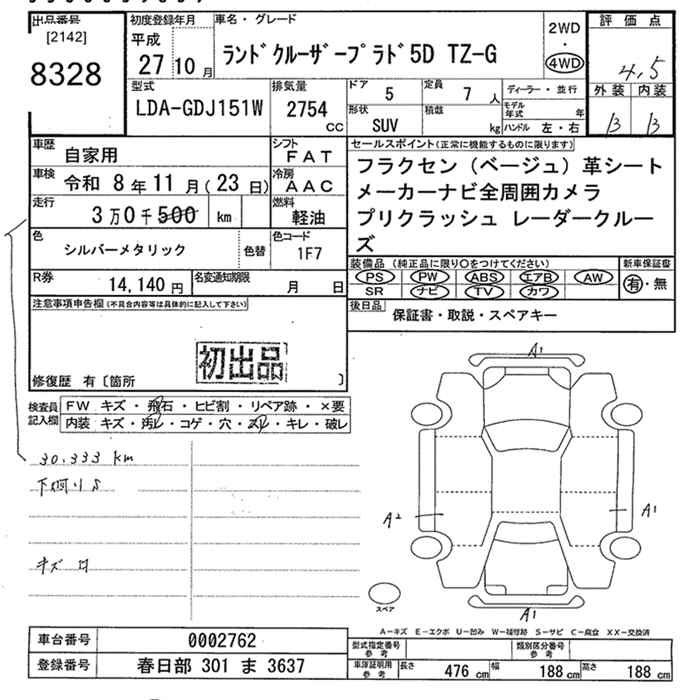 出品番号
[2142]
8328
初度登録年月
平成
27 10 月
車名・グレード
ランドクルーザープラド5D TZ-G
2WD
・
4WD
評価点
4.5
外装 内装
B B
型式
LDA-GDJ151W
排気量
2754
cc
ドア
5
定員
7 人
形状
SUV
積載
kg
ディーラー・並行
モデル年式 年
ハンドル 左・右
車歴
自家用
シフト
FAT
車検
令和 8 年 11 月 ( 23 日)
冷房
AAC
走行
3 万 0 千 500 km
燃料
軽油
色
シルバーメタリック
色替
色コード
1F7
R券
14,140 円
名変通知期限
月 日
セールスポイント(正常に機能するものに限ります)
フラクセン(ベージュ)革シート
メーカーナビ全周囲カメラ
プリクラッシュ レーダークルー
ズ
装備品 (純正品に限り○をつけてください)
PS PW ABS エアB AW
SR ナビ TV カワ
新車保証書
有・無
後日品
保証書・取説・スペアキー
注意事項申告欄(不具合内容等は具体的に記入して下さい)
初出品
修復歴 有〔箇所 〕
検査員
記入欄
FW キズ・飛石・ヒビ割・リペア跡・×要
内装 キズ・汚レ・コゲ・穴・スレ・キレ・破レ
30,333 km
下廻りS
キズ
A1
A2
A1
A1
スペア
A-キズ E-エクボ U-凹み W-補修跡 S-サビ C-腐食 XX-交換済
車台番号
0002762
登録番号
春日部 301 ま 3637
型式指定番号
参考
類別区分番号
参考
車庫証明用
参考
長さ 476 cm 幅 188 cm 高さ 188 cm